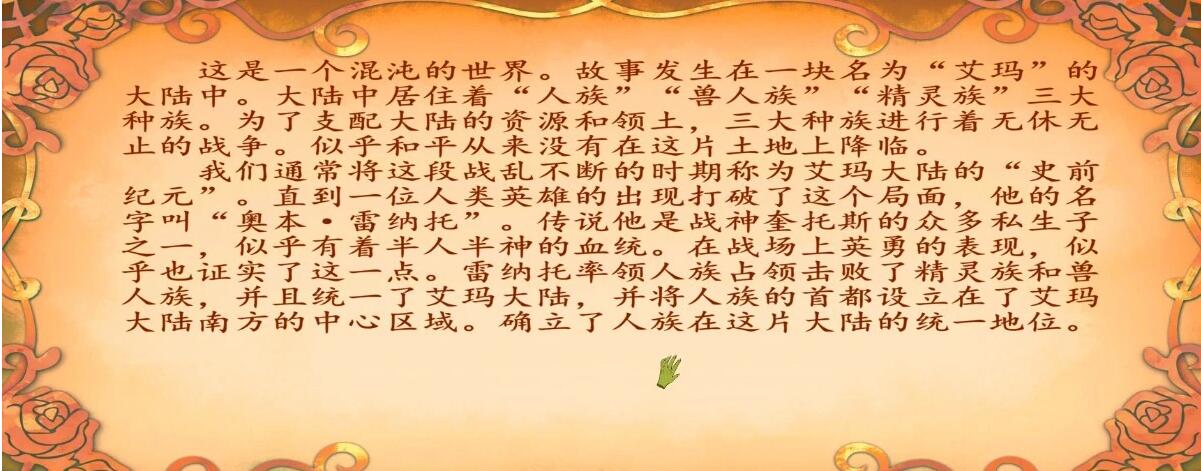 这是一个混沌的世界。故事发生在一块名为“艾玛”的
大陆中。大陆中居住着“人族”“兽人族”“精灵族”三大
种族。为了支配大陆的资源和领土，三大种族进行着无休无
止的战争。似乎和平从来没有在这片土地上降临。
我们通常将这段战乱不断的时期称为艾玛大陆的“史前
纪元”。直到一位人类英雄的出现打破了这个局面，他的名
字叫“奥本·雷纳托”。传说他是战神奎托斯的众多私生子
之一，似乎有着半人半神的血统。在战场上英勇的表现，似
乎也证实了这一点。雷纳托率领人族占领击败了精灵族和兽
人族，并且统一了艾玛大陆，并将人族的首都设立在了艾玛
大陆南方的中心区域。确立了人族在这片大陆的统一地位。